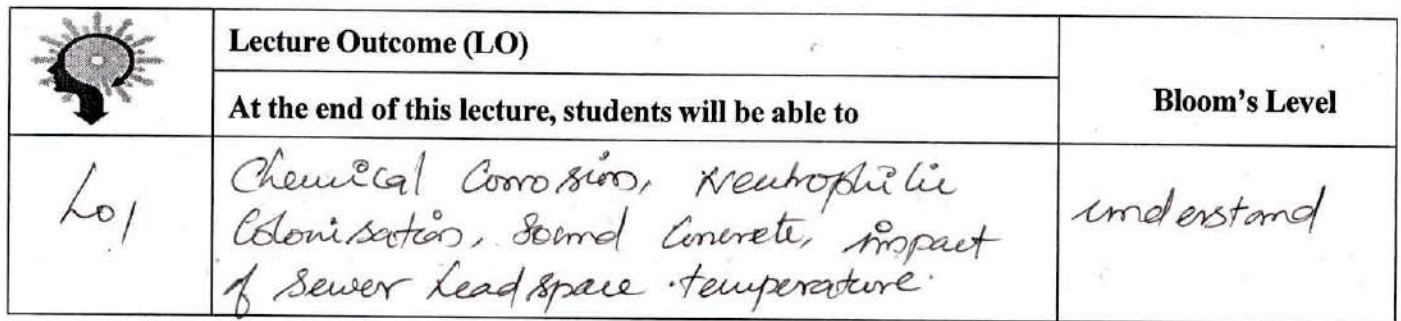 Lecture Outcome (LO)
At the end of this lecture, students will be able to
Bloom's Level
LO1
Chemical Corrosion, Neutrophilic
Colonisation, Sound Concrete, impact
of Sewer headspace temperature.
understand